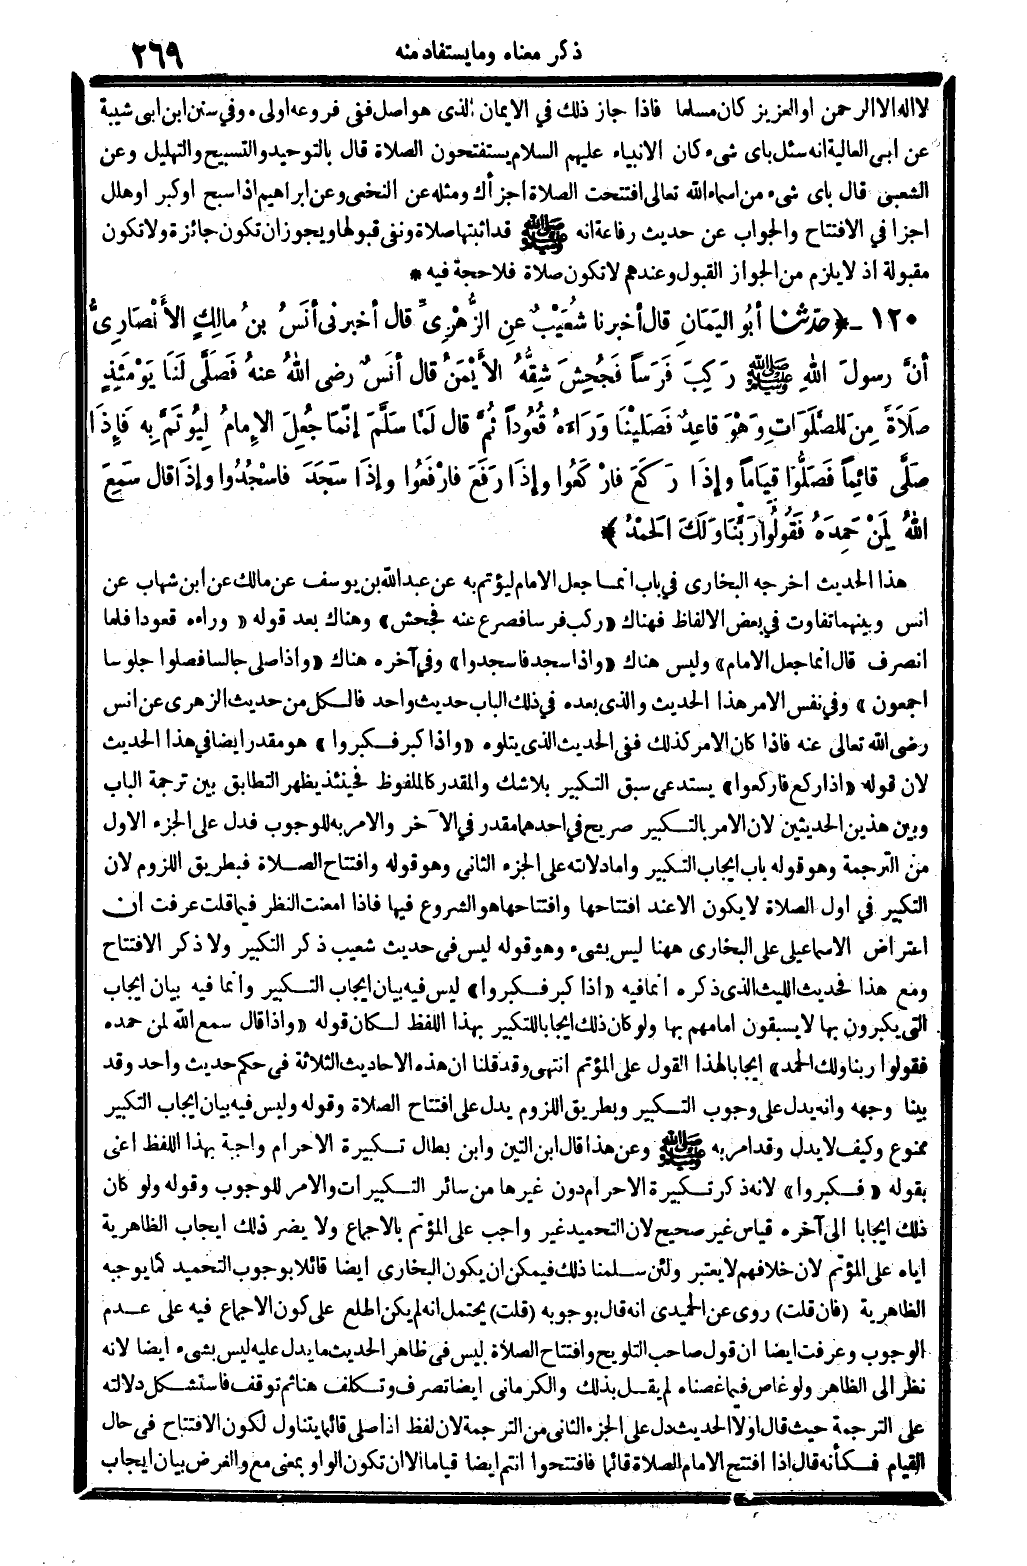 ذكر معناه وما يستفاد منه ٢٦٩
لا اله الا الرحمن او العزيز كان مسلما فاذا جاز ذلك في الايمان الذى هو اصل ففى فروعه اولى، وفي سنن ابن ابى شيبة
عن ابى العالية انه سئل باى شىء كان الانبياء عليهم السلام يستفتحون الصلاة قال بالتوحيد والتسبيح والتهليل وعن
الشعبى قال باى شىء من اسماء الله تعالى افتتحت الصلاة اجزأك ومثله عن النخعى وعن ابراهيم اذا سبح او كبر او هلل
اجزا في الافتتاح والجواب عن حديث رفاعة انه ﷺ قد اثبتها صلاة ونفى قبولها ويجوز ان تكون جائزة ولا تكون
مقبولة اذ لا يلزم من الجواز القبول وعندهم لا تكون صلاة فلا حجة فيه *
١٢٠ - ﴿ حَدَّثَنَا أبُو اليَمَانِ قال أخبرنا شُعَيْبٌ عنِ الزُّهْرِىِّ قال أخبرنى أنَسُ بنُ مالِكٍ الأَنْصَارِىُّ
أنَّ رسولَ اللهِ ﷺ رَكِبَ فَرَساً فَجُحِشَ شِقُّهُ الأَيْمَنُ قال أنَسٌ رضى اللهُ عنهُ فَصَلَّى لَنَا يَوْمَئِذٍ
صَلاَةً مِنَ الصَّلَوَاتِ وَهْوَ قاعِدٌ فَصَلَّيْنَا وَرَاءَهُ قُعُوداً ثُمَّ قال لَمَّا سَلَّمَ إنَّمَا جُعِلَ الإِمامُ لِيُؤْتَمَّ بِهِ فَإِذَا
صَلَّى قائِماً فَصَلُّوا قِيَاماً وإِذَا رَكَعَ فارْكَعُوا وإِذَا رَفَعَ فارْفَعُوا وإِذَا سَجَدَ فاسْجُدُوا وإِذَا قال سَمِعَ
اللهُ لِمَنْ حَمِدَهُ فَقُولُوا رَبَّنَا وَلَكَ الحَمْدُ ﴾
هذا الحديث اخرجه البخارى في باب انما جعل الامام ليؤتم به عن عبد الله بن يوسف عن مالك عن ابن شهاب عن
انس وبينهما تفاوت في بعض الالفاظ فهناك «ركب فرسا فصرع عنه فجحش» وهناك بعد قوله « وراءه قعودا فلما
انصرف قال انما جعل الامام» وليس هناك «واذا سجد فاسجدوا» وفي آخره هناك «واذا صلى جالسا فصلوا جلوسا
اجمعون » وفي نفس الامر هذا الحديث والذى بعده في ذلك الباب حديث واحد فالكل من حديث الزهرى عن انس
رضى الله تعالى عنه فاذا كان الامر كذلك ففى الحديث الذى يتلوه «واذا كبر فكبروا » هو مقدر ايضا في هذا الحديث
لان قوله «اذا ركع فاركعوا» يستدعى سبق التكبير بلا شك والمقدر كالملفوظ فحينئذ يظهر التطابق بين ترجمة الباب
وبين هذين الحديثين لان الامر بالتكبير صريح في احدهما مقدر في الآخر والامر به للوجوب فدل على الجزء الاول
من الترجمة وهو قوله باب ايجاب التكبير واما دلالته على الجزء الثانى وهو قوله وافتتاح الصلاة فبطريق اللزوم لان
التكبير في اول الصلاة لا يكون الا عند افتتاحها وافتتاحها هو الشروع فيها فاذا امعنت النظر فيما قلت عرفت ان
اعتراض الاسماعيلى على البخارى ههنا ليس بشىء وهو قوله ليس فى حديث شعيب ذكر التكبير ولا ذكر الافتتاح
ومع هذا فحديث الليث الذى ذكره انما فيه «اذا كبر فكبروا» ليس فيه بيان ايجاب التكبير وانما فيه بيان ايجاب
التى يكبرون بها لا يسبقون امامهم بها ولو كان ذلك ايجابا للتكبير بهذا اللفظ لكان قوله «واذا قال سمع الله لمن حمده
فقولوا ربنا ولك الحمد» ايجابا لهذا القول على المؤتم انتهى وقد قلنا ان هذه الاحاديث الثلاثة فى حكم حديث واحد وقد
بينا وجهه وانه يدل على وجوب التكبير وبطريق اللزوم يدل على افتتاح الصلاة وقوله وليس فيه بيان ايجاب التكبير
ممنوع وكيف لا يدل وقد امر به ﷺ وعن هذا قال ابن التين وابن بطال تكبيرة الاحرام واجبة بهذا اللفظ اعنى
بقوله « فكبروا» لانه ذكر تكبيرة الاحرام دون غيرها من سائر التكبيرات والامر للوجوب وقوله ولو كان
ذلك ايجابا الى آخره قياس غير صحيح لان التحميد غير واجب على المؤتم بالاجماع ولا يضر ذلك ايجاب الظاهرية
اياه على المؤتم لان خلافهم لا يعتبر ولئن سلمنا ذلك فيمكن ان يكون البخارى ايضا قائلا بوجوب التحميد كما يوجبه
الظاهرية (فان قلت) روى عن الحميدى انه قال بوجوبه (قلت) يحتمل انه لم يكن اطلع على كون الاجماع فيه على عدم
الوجوب وعرفت ايضا ان قول صاحب التلويح وافتتاح الصلاة ليس فى ظاهر الحديث ما يدل عليه ليس بشىء ايضا لانه
نظر الى الظاهر ولو غاص فيما غصناه لم يقل بذلك والكرمانى ايضا تصرف وتكلف هنا ثم توقف فاستشكل دلالته
على الترجمة حيث قال اولا الحديث دل على الجزء الثانى من الترجمة لان لفظ اذا صلى قائما يتناول لكون الافتتاح فى حال
القيام فكأنه قال اذا افتتح الامام الصلاة قائما فافتتحوا انتم ايضا قياما الا ان تكون الواو بمعنى مع والغرض بيان ايجاب